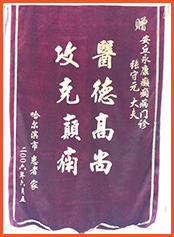 赠
安丘永康癫痫病门诊
张守元 大夫
醫德高尚
攻克癲痫
哈尔滨市·患者 家
二〇〇六年六月五